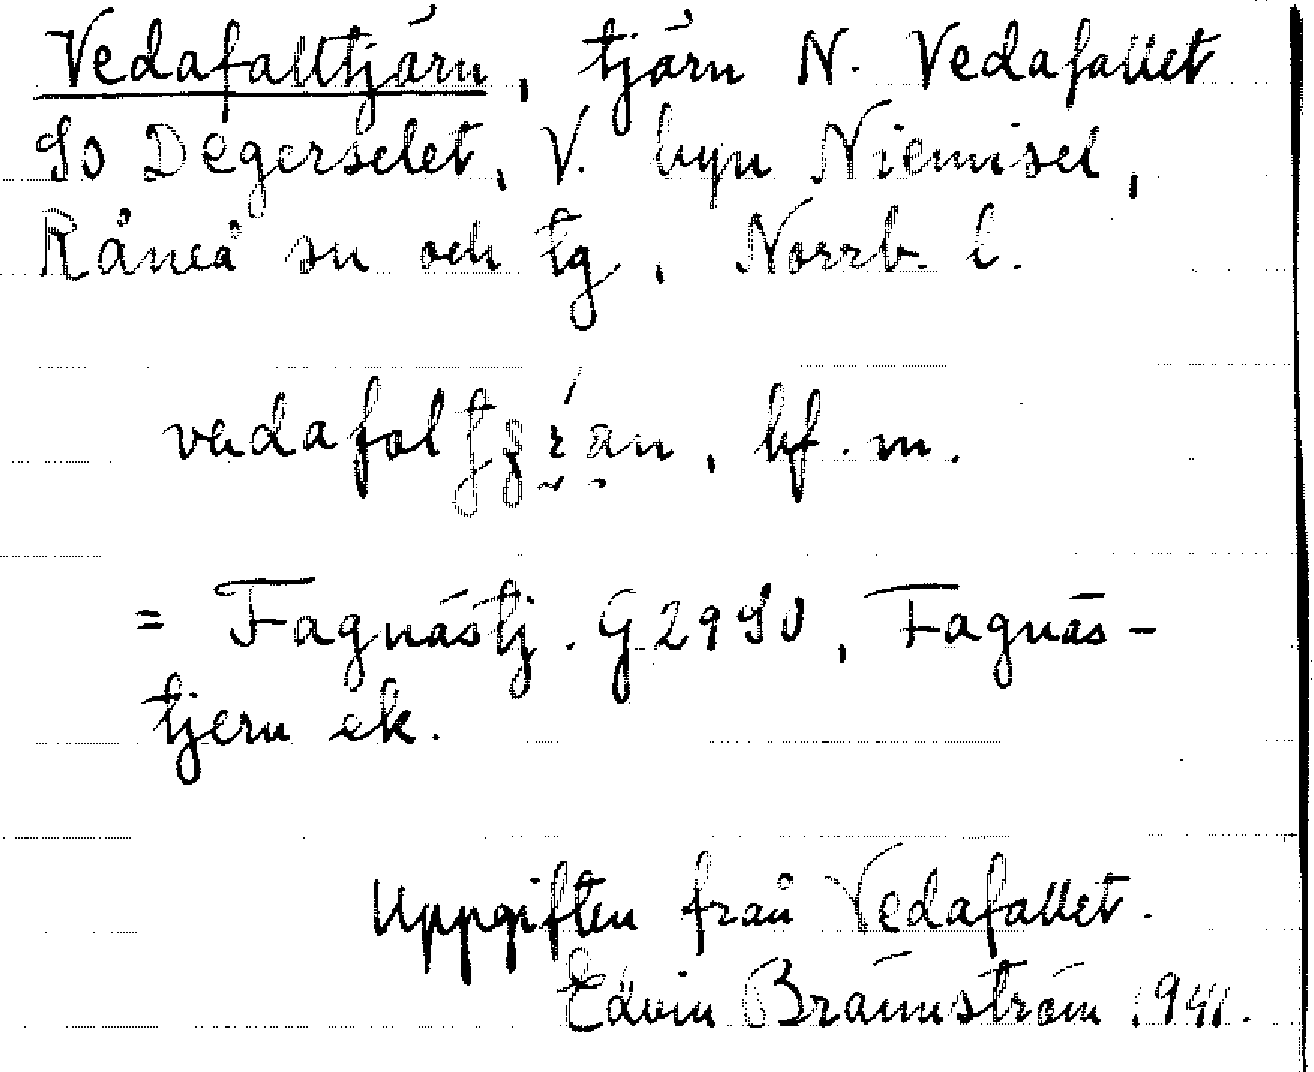 Vedafalltjärn, tjärn N. Vedafallet
SO Degerselet, V. byn Niemisel,
Råneå sn och tg, Norrb. l.
vedafal, bf. m.
= Fagnästj. G 29 SO, Fagnäs-
tjern ek.
Uppgiften från Vedafallet.
Edvin Brännström 1941.